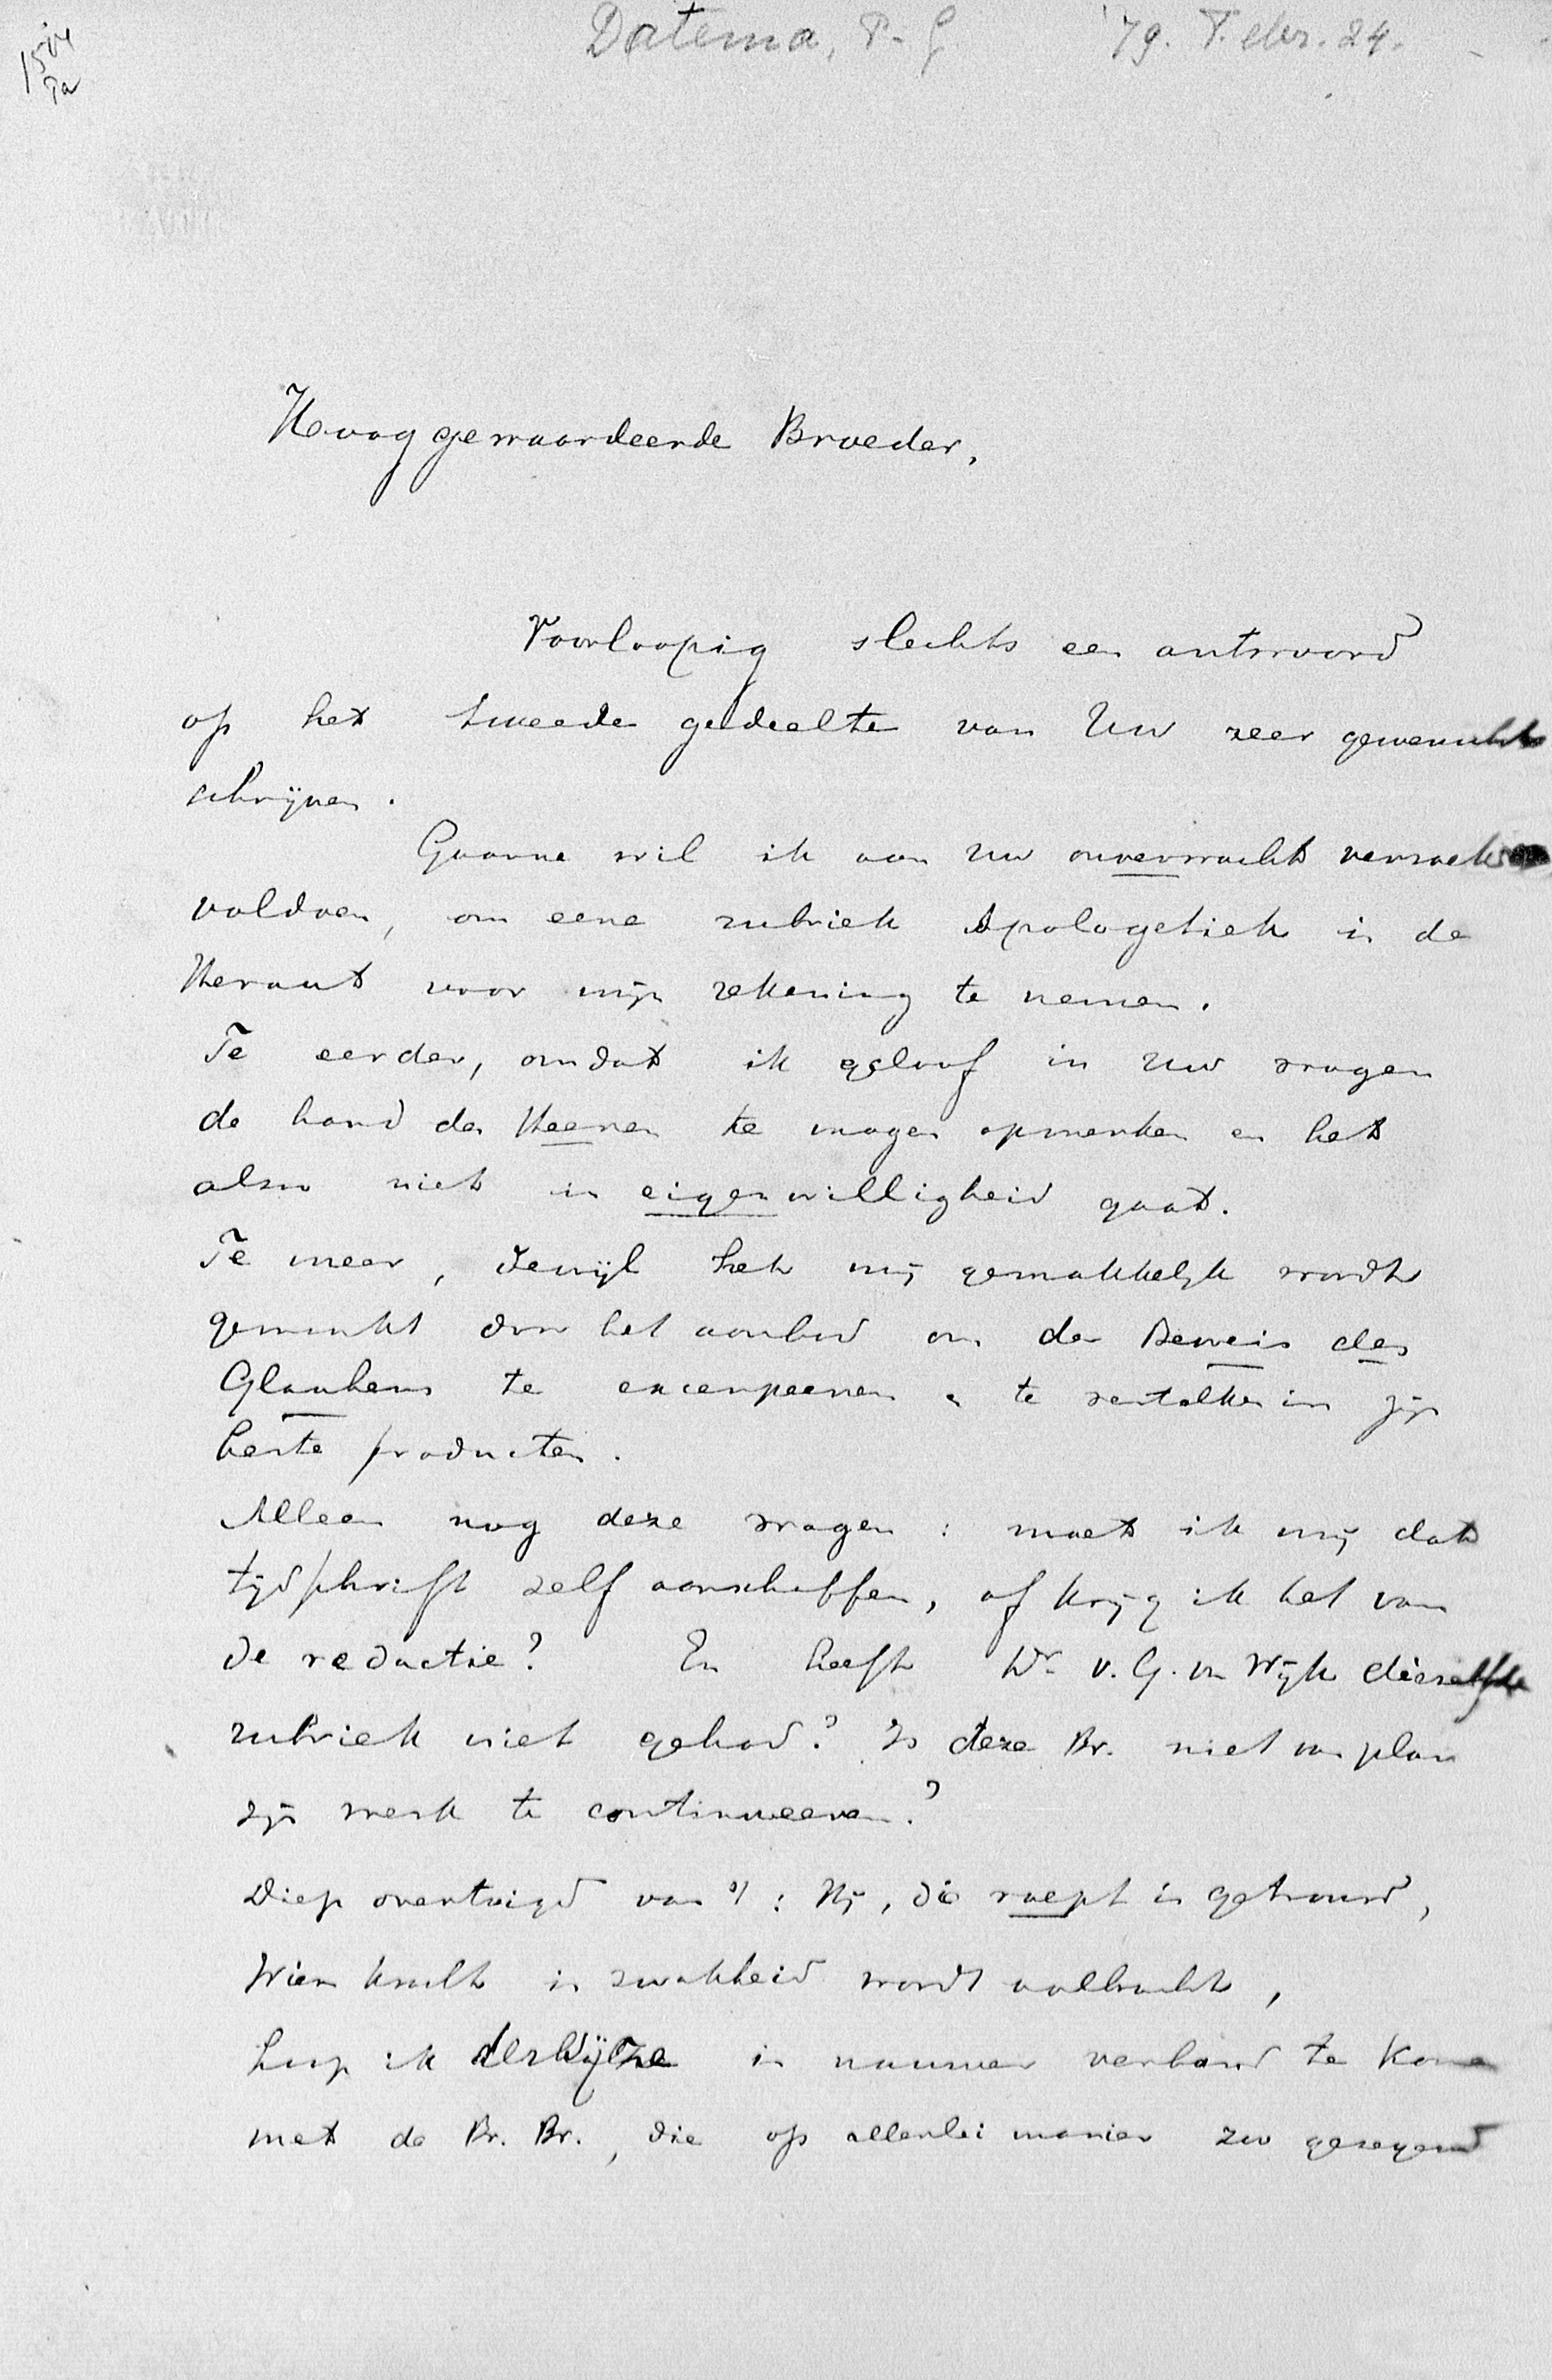 1504
Datema, P. G. '79. Febr. 24.
Hooggewaardeerde Broeder,
Voorloopig slechts een antwoord
op het tweede gedeelte van Uw zeer gewenscht
schrijven.
Gaarne wil ik aan Uw onverwacht verzoek
voldoen, om eene rubriek Apologetiek in de
Heraut voor mijn rekening te nemen.
Te eerder, omdat ik geloof in Uw vragen
de hand des Heeren te mogen opmerken en het
alzoo niet in eigenwilligheid gaat.
Te meer, dewijl het mij gemakkelijk wordt
gemaakt door het aanbod om den Beweis des
Glaubens te excerpeeren en te vertolken in zijn
beste producten.
Alleen nog deze vragen: moet ik mij dat
tijdschrift zelf aanschaffen, of krijg ik het van
de redactie? En heeft Dr. v. G. v. Wijk diezelfde
rubriek niet gehad? Is deze Br. niet van plan
zijn werk te continueeren?
Diep overtuigd van 't: Hij, die roept is getrouw,
Wiens kracht in zwakheid wordt volbracht,
hoop ik derwijze in nauwer verband te komen
met de Br. Br., die op allerlei manier zoo gezegend